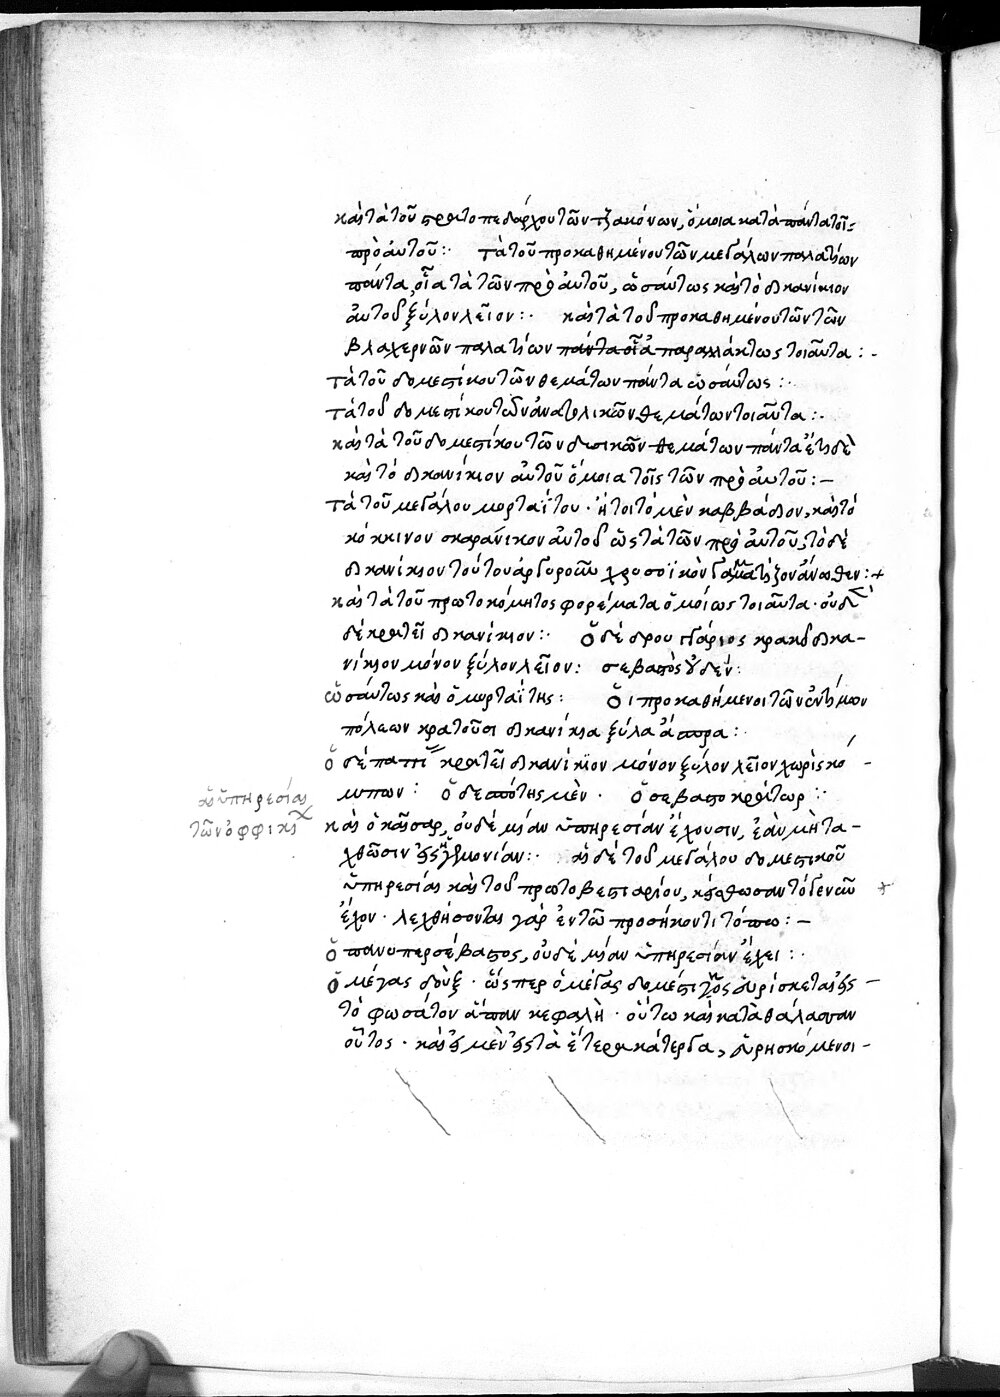 καὶ τὰ τοῦ στρατοπεδάρχου τῶν τζακόνων, ὅμοια κατὰ πάντα τοῖς
πρὸ αὐτοῦ: τὰ τοῦ προκαθημένου τῶν μεγάλων παλατίων
πάντα, οἷα τὰ τῶν πρὸ αὐτοῦ, ὡσαύτως καὶ τὸ δικανίκιον
αὐτοῦ ξύλον λεῖον: καὶ τὰ τοῦ προκαθημένου τῶν τῶν
βλαχερνῶν παλατίων πάντα οἷα παραλλάκτως τοιαῦτα:-
τὰ τοῦ δομεστίκου τῶν θεμάτων πάντα ὡσαύτως:
τὰ τοῦ δομεστίκου τῶν ἀνατολικῶν θεμάτων τοιαῦτα:
καὶ τὰ τοῦ δομεστίκου τῶν δυτικῶν θεμάτων πάντα ἔτι δὲ
καὶ τὸ δικανίκιον αὐτοῦ ὅμοια τοῖς τῶν πρὸ αὐτοῦ:-
τὰ τοῦ μεγάλου μορταΐτου· ἤτοι τὸ μὲν καββάδιον, καὶ τὸ
κόκκινον σκαράνικον αὐτοῦ ὡς τὰ τῶν πρὸ αὐτοῦ, τὸ δὲ
δικανίκιον τούτου ἀργυροῦν χρυσοϊκὸν γαμματίζον ἄνωθεν:+
καὶ τὰ τοῦ πρωτοκόμητος φορέματα ὁμοίως τοιαῦτα· οὐδὲ
δὲ κρατεῖ δικανίκιον: Ὁ δὲ δρουγγάριος κρατεῖ δικα-
νίκιον μόνον ξύλον λεῖον: σεβαστὸς οὐδέν:
ὡσαύτως καὶ ὁ μορταΐτης: Οἱ προκαθήμενοι τῶν ἐντίμων
πόλεων κρατοῦσι δικανίκια ξύλα ἄσπρα:
ὁ δὲ παπί κρατεῖ δικανίκιον μόνον ξύλον λεῖον χωρὶς κό-
μπων: ὁ δεσπότης μὲν· ὁ σεβαστοκράτωρ:
καὶ ὁ καῖσαρ, οὐδὲ μίαν ὑπηρεσίαν ἔχουσιν, ἐὰν μὴ τα-
χθῶσιν εἰς ἡγεμονίαν: αἱ δὲ τοῦ μεγάλου δομεστίκου
ὑπηρεσίαι καὶ τοῦ πρωτοβεστιαρίου, κείσθωσαν τὸ γενοῦν
ἔχον· λεχθήσονται γὰρ ἐν τῷ προσήκοντι τόπῳ:-
ὁ πανυπερσέβαστος, οὐδὲ μίαν ὑπηρεσίαν ἔχει:
ὁ μέγας δοὺξ· ὥσπερ ὁ μέγας δομέστικος εὑρίσκεται εἰς
τὸ φωσάτον ἅπαν κεφαλὴ· οὕτω καὶ κατὰ θάλασσαν
οὗτος· καὶ εἰ μὲν εἰς τὰ ἕτερα κάτεργα, εὑρισκόμενοι-
αἱ ὑπηρεσίαι
τῶν ὀφφικίων